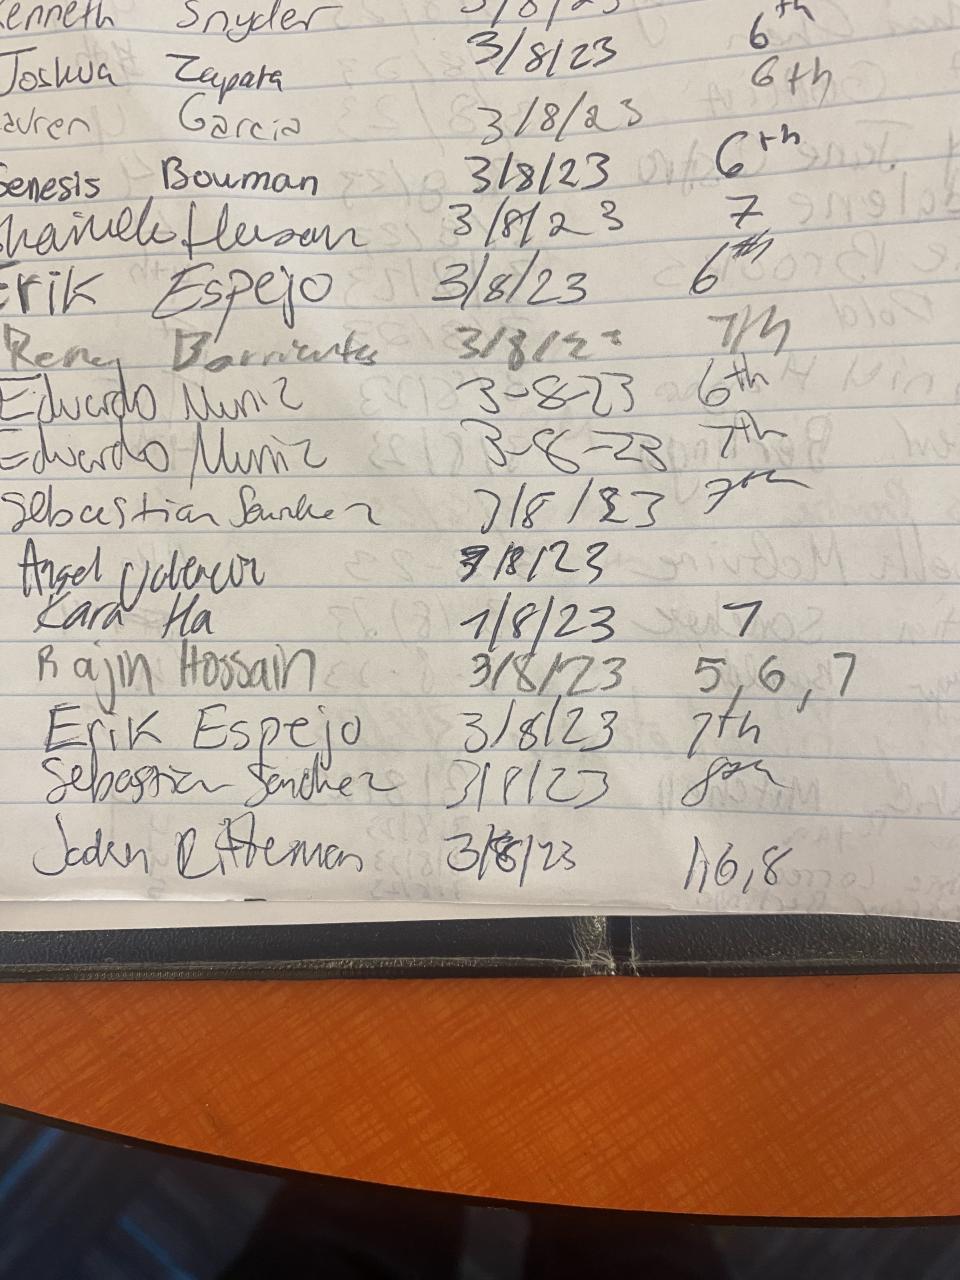 Kenneth Snyder 3/8/23 6th
Joshua Zapata 3/8/23 6th
Lauren Garcia 3/8/23
Genesis Bouman 3/8/23 6th
3/8/23 7
Erik Espejo 3/8/23 6th
Reney Barrientos 3/8/23 7th
Eduardo Muniz 3-8-23 6th
Eduardo Muniz 3-8-23 7th
Sebastian Sanchez 3/8/23 7th
Angel 3/8/23
Kara Ha 1/8/23 7
Rajin Hossain 3/8/23 5,6,7
Erik Espejo 3/8/23 7th
Sebastian Sanchez 3/8/23 8th
Jaden Ritteman 3/8/23 6,8